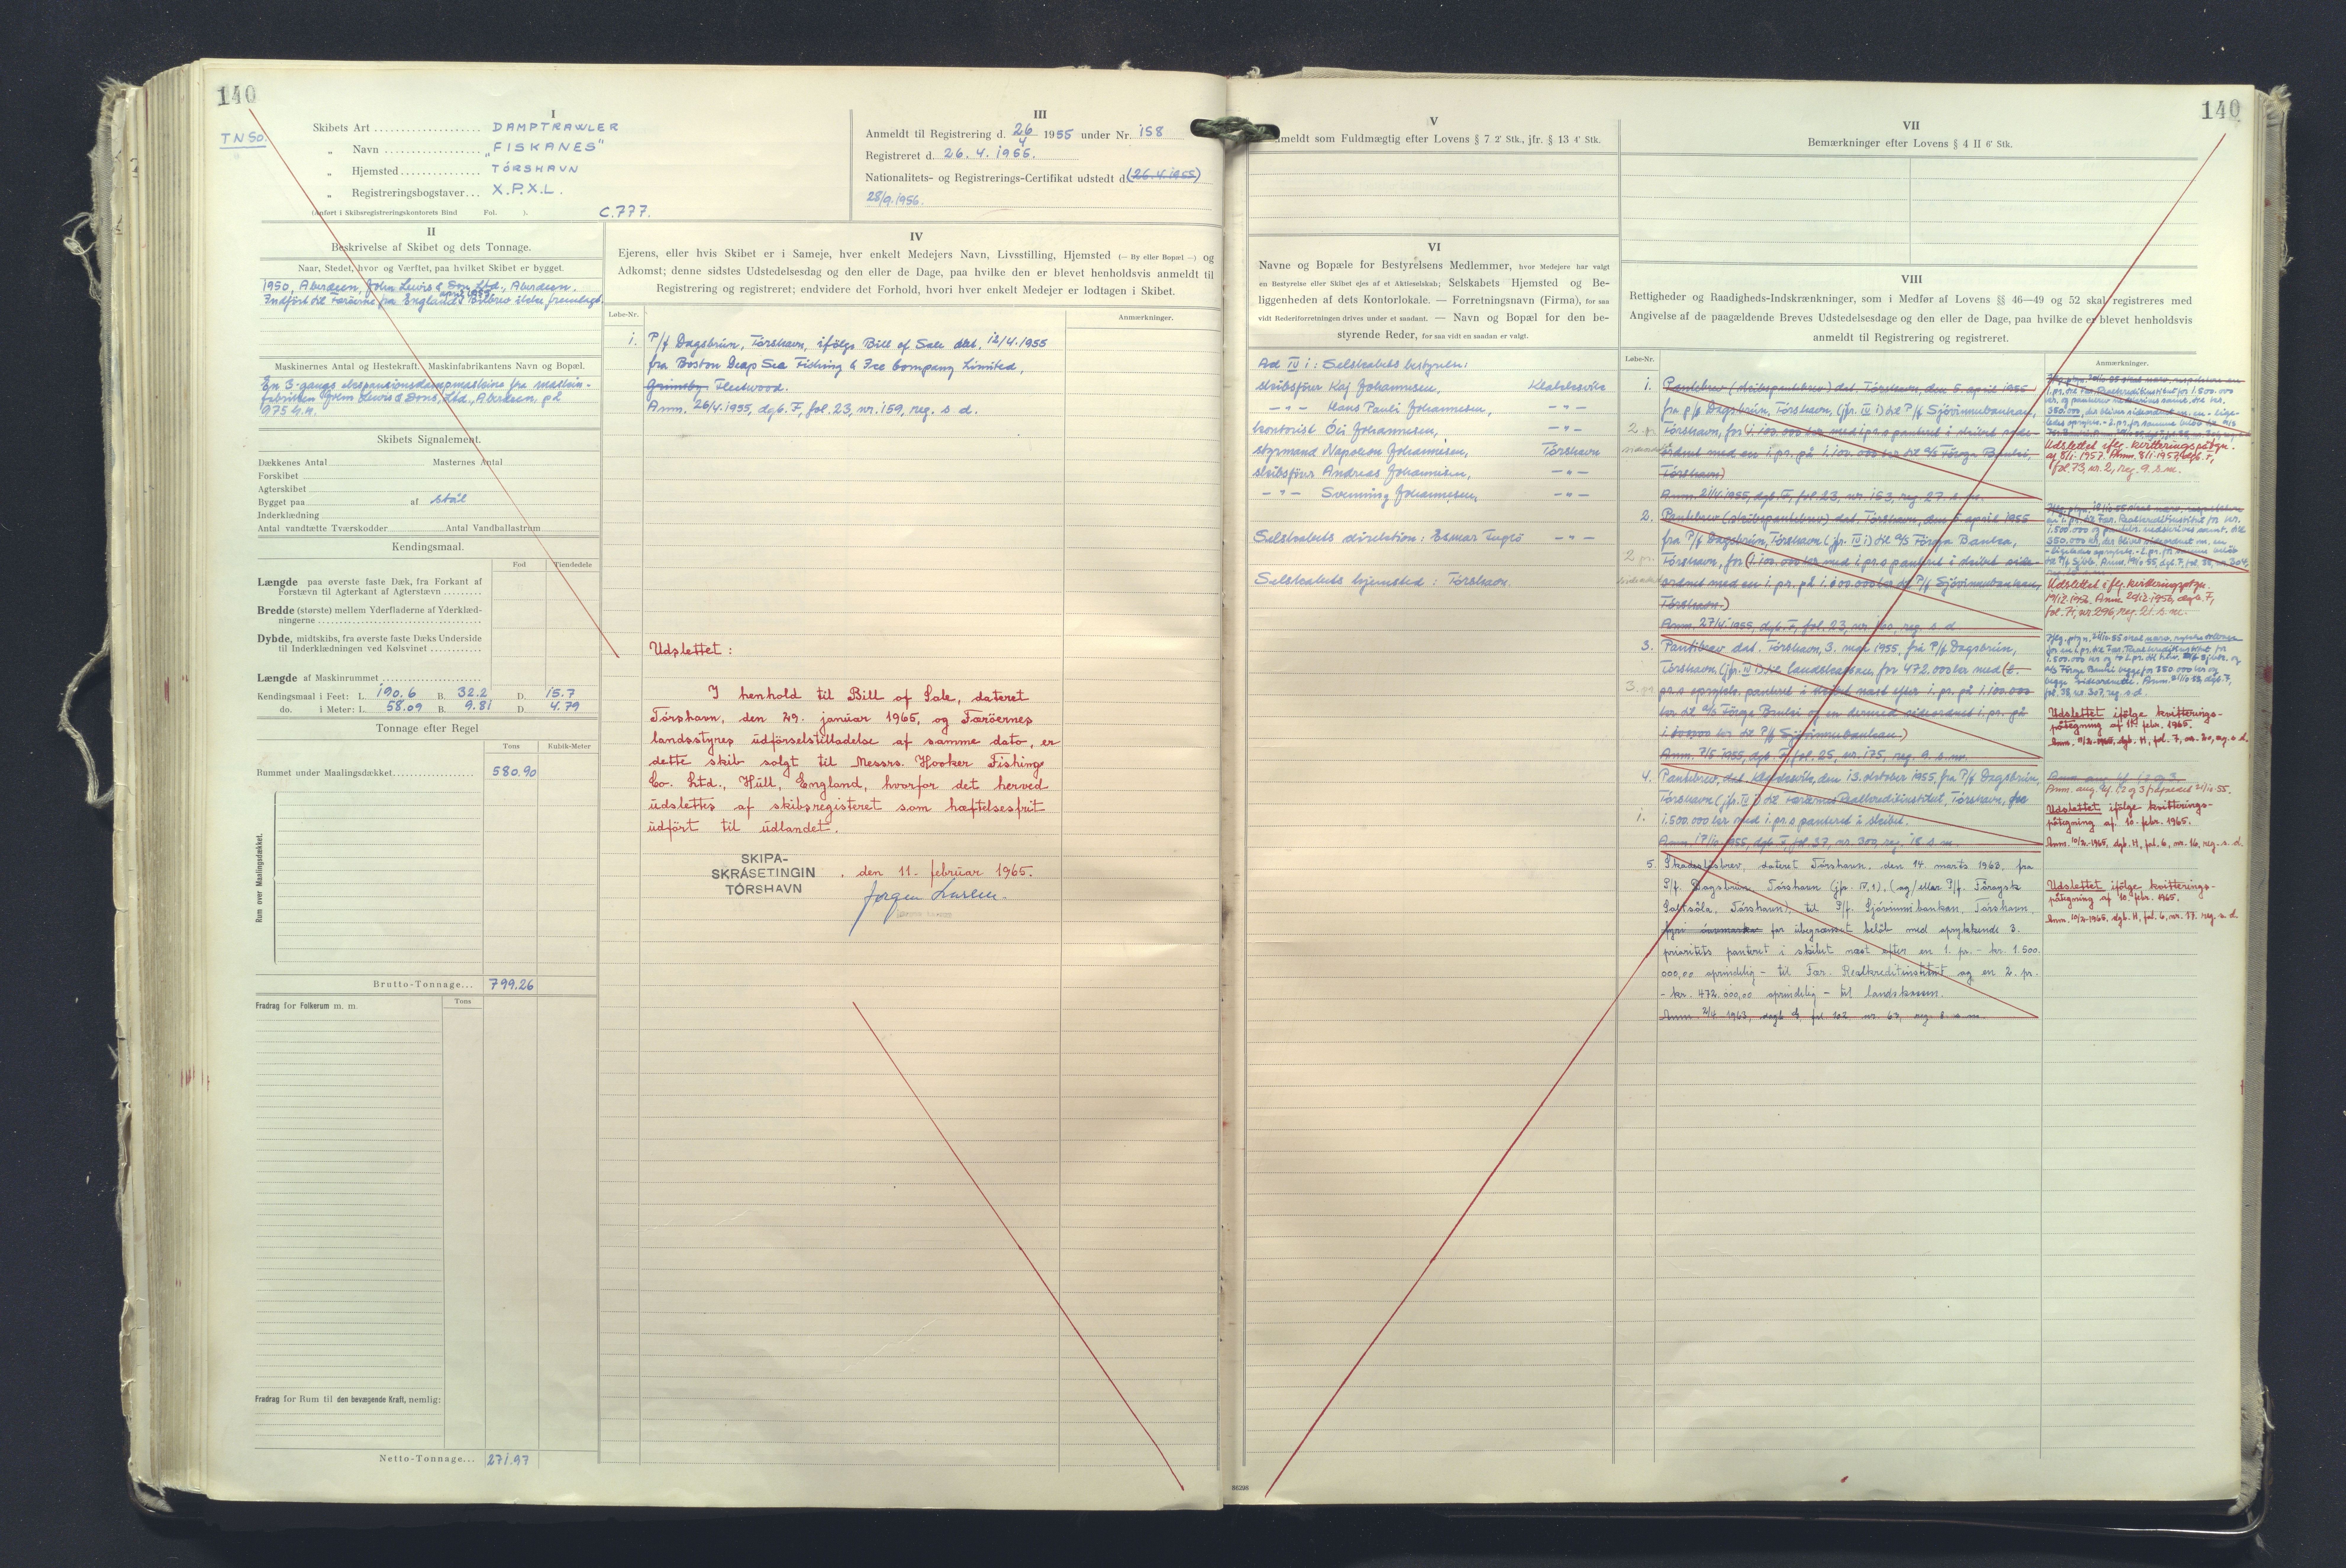 140
TN 50.
I
Skibets Art ... DAMPTRAWLER
„ Navn ... „FISKANES"
„ Hjemsted ... TÓRSHAVN
„ Registreringsbogstaver ... X.P.X.L.
(Anført i Skibsregistreringskontorets Bind Fol. ).
C.777.
III
Anmeldt til Registrering d. 26/4 1955 under Nr. 158
Registreret d. 26.4.1955.
Nationalitets- og Registrerings-Certifikat udstedt d. (26.4.1955)
28/9.1956.
II
Beskrivelse af Skibet og dets Tonnage.
Naar, Stedet, hvor og Værftet, paa hvilket Skibet er bygget.
1950, Aberdeen, John Lewis & Son Ltd., Aberdeen.
Indført til Færøerne fra England april 1955. Bilbrev ikke fremlagt.
Maskinernes Antal og Hestekraft. Maskinfabrikantens Navn og Bopæl.
En 3-gangs ekspansionsdampmaskine fra maskin-
fabrikken John Lewis & Sons, Ltd., Aberdeen, på
975 h.k.
Skibets Signalement.
Dækkenes Antal Masternes Antal
Forskibet
Agterskibet
Bygget paa af stål
Inderklædning
Antal vandtætte Tværskodder Antal Vandballastrum
Kendingsmaal.
Fod Tiendedele
Længde paa øverste faste Dæk, fra Forkant af
Forstævn til Agterkant af Agterstævn
Bredde (største) mellem Yderfladerne af Yderklæd-
ningerne
Dybde, midtskibs, fra øverste faste Dæks Underside
til Inderklædningen ved Kølsvinet
Længde af Maskinrummet
Kendingsmaal i Feet: L. 190.6 B. 32.2 D. 15.7
do. i Meter: L. 58.09 B. 9.81 D. 4.79
Tonnage efter Regel
Tons Kubik-Meter
Rummet under Maalingsdækket 580.90
Rum over Maalingsdækket.
Brutto-Tonnage... 799.26
Fradrag for Folkerum m. m. Tons
Fradrag for Rum til den bevægende Kraft, nemlig:
Netto-Tonnage... 271.97
IV
Ejerens, eller hvis Skibet er i Sameje, hver enkelt Medejers Navn, Livsstilling, Hjemsted (— By eller Bopæl —) og
Adkomst; denne sidstes Udstedelsesdag og den eller de Dage, paa hvilke den er blevet henholdsvis anmeldt til
Registrering og registreret; endvidere det Forhold, hvori hver enkelt Medejer er lodtagen i Skibet.
Løbe-Nr. Anmærkninger.
1. P/f Dagsbrún, Tórshavn, ifølge Bill of Sale dat. 12/4.1955
fra Boston Deep Sea Fishing & Ice Company Limited,
Grimsby. Fleetwood.
Anm. 26/4.1955, dgb. F, fol. 23, nr. 159, reg. s. d.
Udslettet:
I henhold til Bill of Sale, dateret
Tórshavn, den 29. januar 1965, og Færöernes
landsstyres udførselstilladelse af samme dato, er
dette skib solgt til Messrs. Hooker Fishing
Co. Ltd., Hull, England, hvorfor det herved
udslettes af skibsregisteret som hæftelsesfrit
udført til udlandet.
SKIPA-
SKRÁSETINGIN
TÓRSHAVN
, den 11. februar 1965.
140
V
Anmeldt som Fuldmægtig efter Lovens § 7 2' Stk., jfr. § 13 4' Stk.
VI
Navne og Bopæle for Bestyrelsens Medlemmer, hvor Medejere har valgt
en Bestyrelse eller Skibet ejes af et Aktieselskab; Selskabets Hjemsted og Be-
liggenheden af dets Kontorlokale. — Forretningsnavn (Firma), for saa
vidt Rederiforretningen drives under et saadant. — Navn og Bopæl for den be-
styrende Reder, for saa vidt en saadan er valgt.
Ad IV 1: Selskabets bestyrelse:
skibsfører Kaj Johannesen, Klaksvik
— " — Hans Pauli Johannesen, — " —
kontorist Óli Johannesen, — " —
styrmand Napoleon Johannesen, Tórshavn
skibsfører Andreas Johannesen, — " —
— " — Svenning Johannesen, — " —
Selskabets direktion: Esmar Fuglø — " —
Selskabets hjemsted: Tórshavn.
86298
VII
Bemærkninger efter Lovens § 4 II 6' Stk.
VIII
Rettigheder og Raadigheds-Indskrænkninger, som i Medfør af Lovens §§ 46—49 og 52 skal registreres med
Angivelse af de paagældende Breves Udstedelsesdage og den eller de Dage, paa hvilke de er blevet henholdsvis
anmeldt til Registrering og registreret.
Løbe-Nr. Anmærkninger.
1. Pantebrev (skibspantebrev) dat. Tórshavn, den 5. april 1955
fra p/f Dagsbrún, Tórshavn, (jfr. IV 1) til P/f Sjóvinnubankan,
2. pr. Tórshavn, for (1.100.000 kr. med 1. pr. s panteret i skibet side-
ordnet med en 1. pr. på 1.100.000 kr. til A/S Føroya Banki,
Tórshavn)
Anm. 21/4.1955, dgb. F, fol. 23, nr. 153, reg. 27. s. m.
Udslettet iflg. kvitteringspåtgn.
af 8/1-1957. Anm. 8/1-1957 dgb. F,
fol. 73, nr. 2, reg. 9. s. m.
2. Pantebrev (skibspantebrev) dat. Tórshavn, den 5 april 1955
fra P/f Dagsbrún, Tórshavn (jfr. IV 1) til A/S Føroya Banka,
2 pr. Tórshavn, for (1.100.000 kr. med 1. pr. s panteret i skibet side-
ordnet med en 1. pr. på 1.100.000 kr. til P/f Sjóvinnubankan,
Tórshavn.)
Anm. 27/4 1955, dgb. F, fol. 23, nr. 160, reg. s. d
Udslettet iflg. kvitteringspåtgn.
19/12.1956. Anm. 20/12 1956, dgb. F,
fol. 71, nr. 296, reg. 21. s. m.
3. Pantebrev dat. Tórshavn, 3. maj 1955, fra P/f Dagsbrún,
Tórshavn (jfr. IV 1) til landskassen, for 472.000 kr med (2.
3. pr. pr.s oprykk. panteret i skibet næst efter 1. pr. på 1.100.000
kr. til A/S Föroya Banki og en dermed sideordnet 1. pr. på
1.100.000 kr. til P/f Sjóvinnubankan)
Anm. 7/5 1955, dgb. F, fol. 25, nr. 175, reg. 9. s. m.
Udslettet ifølge kvitterings-
påtegning af 11. febr. 1965.
Anm. 11/2-1965, dgb. H, fol. 7, nr. 20, reg. s. d.
4. Pantebrev, dat. Klaksvik, den 13. oktober 1955, fra P/f Dagsbrún,
Tórshavn (jfr. IV 1) til Færøernes Realkreditinstitut, Tórshavn, for
1. 1.500.000 kr med 1. pr.s panteret i skibet.
Anm. 17/10 1955, dgb. F, fol. 37, nr. 300, reg. 18. s. m.
Udslettet ifølge kvitterings-
påtegning af 10. febr. 1965.
Anm. 10/2-1965, dgb. H, fol. 6, nr. 16, reg. s. d.
5. Skadesløsbrev, dateret Tórshavn, den 14. marts 1963, fra
P/f. Dagsbrún, Tórshavn (jfr. IV.1), (og/eller P/f. Føroysk
Saltsøla, Tórshavn), til P/f. Sjóvinnubankan, Tórshavn,
for ubegrænset beløb med oprykkende 3.
prioritets panteret i skibet næst efter en 1. pr. - kr. 1.500.
000,00 oprindelig - til Fær. Realkreditinstitut og en 2. pr.
- kr. 472.000,00 oprindelig - til landskassen.
Anm. 2/4 1963, dagb. G, fol. 102, nr. 63, reg. 8. s. m.
Udslettet ifølge kvitterings-
påtegning af 10. febr. 1965.
Anm. 10/2-1965, dgb. H, fol. 6, nr. 17, reg. s. d.